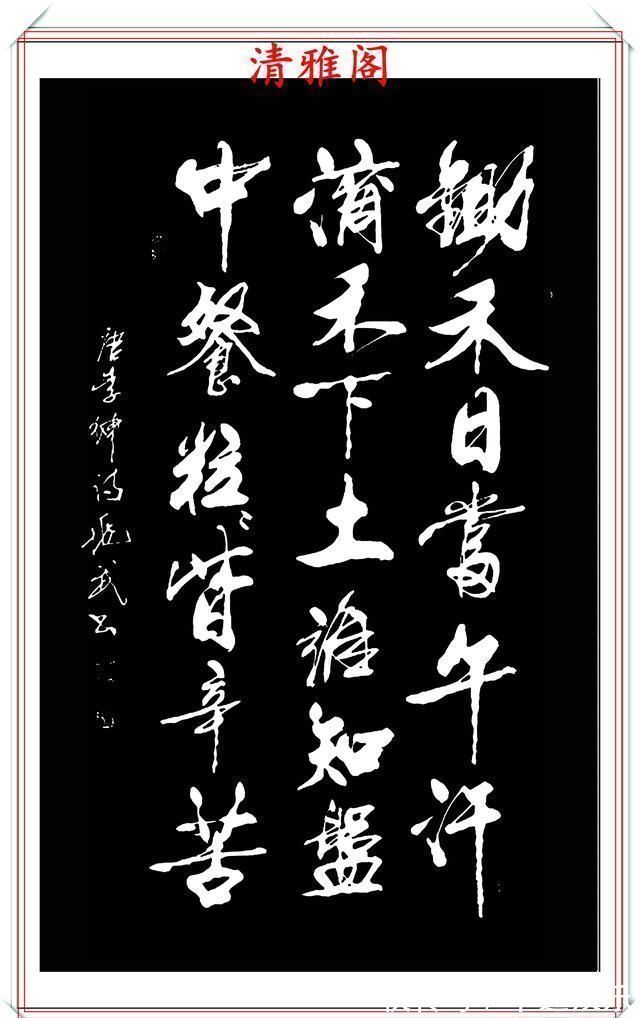 清雅阁
鋤禾日當午汗
滴禾下土誰知盤
中餐粒〻皆辛苦
唐李紳詩 武书